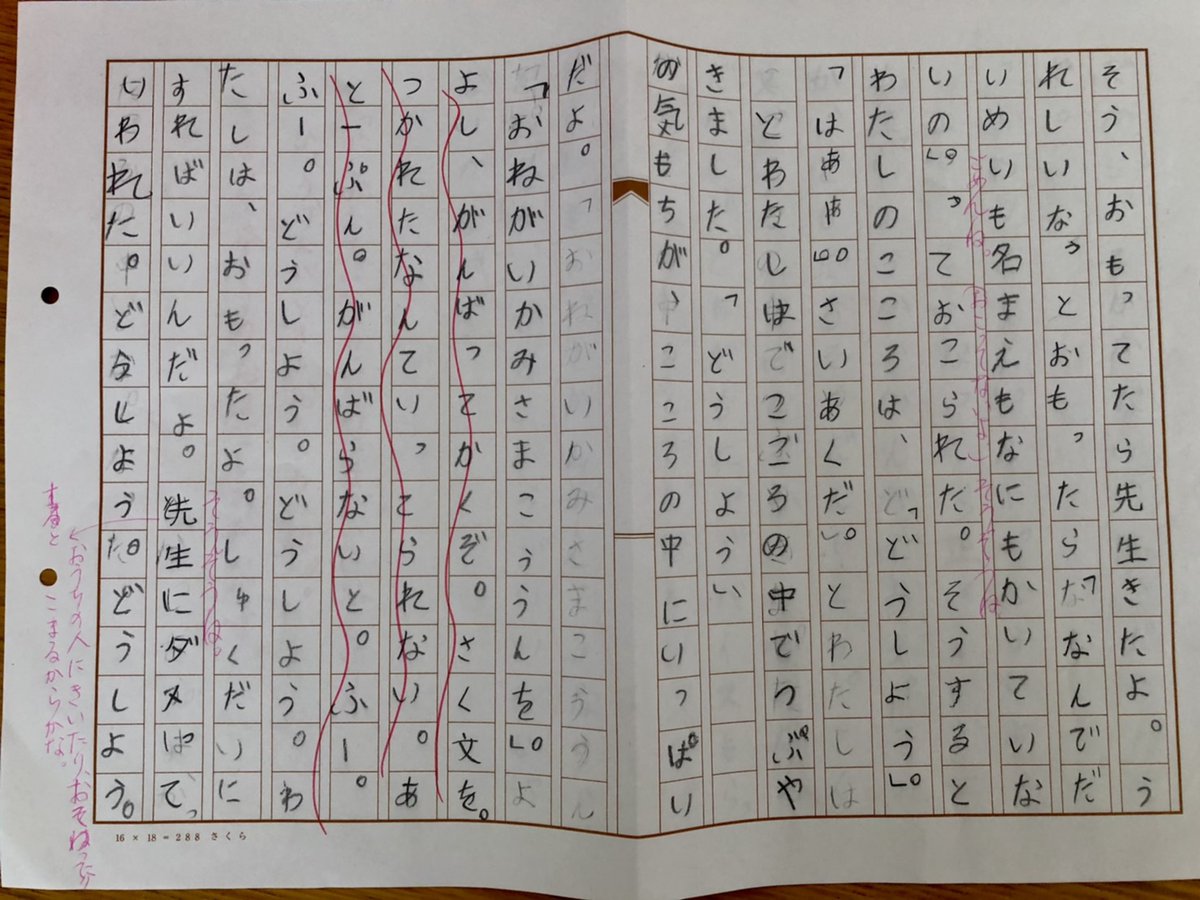 そう、おもってたら先生きたよ。う
れしいな。」とおもったら「なんでだ
いめいも名まえもなにもかいていな
いの。」っておこられた。そうすると
わたしのこころは、「どうしよう。」
「はぁぁぁ。」さいあくだ。」とわたしは
とわたしはでこころの中でつぶや
きました。「どうしようい
の気もちが、こころの中にいっぱい
だよ。「おねがいかみさまこううん
「おねがいかみさまこううんを。」よ
よし、がんばってかくぞ。さく文を。
つかれたなんていってられない。あ
と一ぷん。がんばらないと。ふー。
ふー。どうしよう。どうしよう。わ
たしは、おもったよ。しゅくだいに
すればいいんだよ。先生にダメばてっ
いわれた。どうしよう。どうしよう。
ごめんね。
おこってないよ
そうそうね
そうそうね。
おうちの人にきいたり、おそわったり
すると
こまるからかな。
16 × 18 = 288 さくら